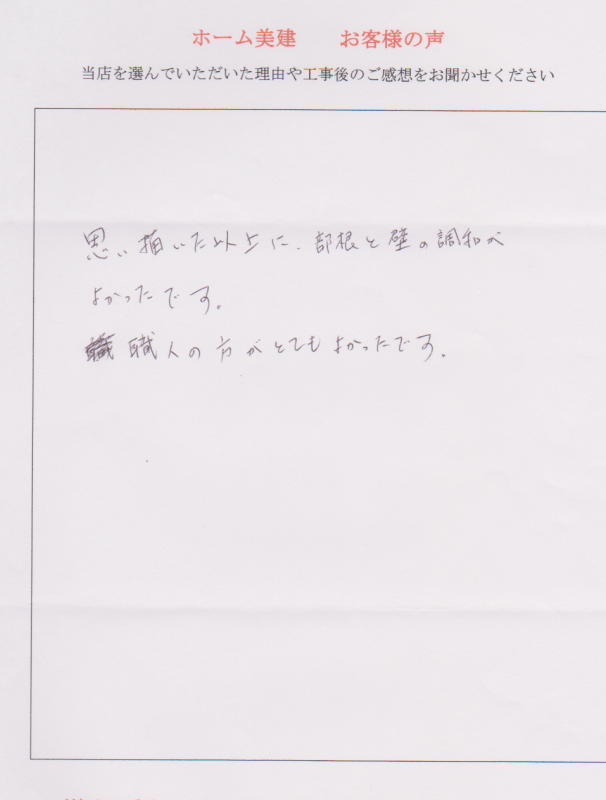 ホーム美建　　お客様の声
当店を選んでいただいた理由や工事後のご感想をお聞かせください
思い描いた以上に、部根と壁の調和が
よかったです。
職人の方がとてもよかったです。